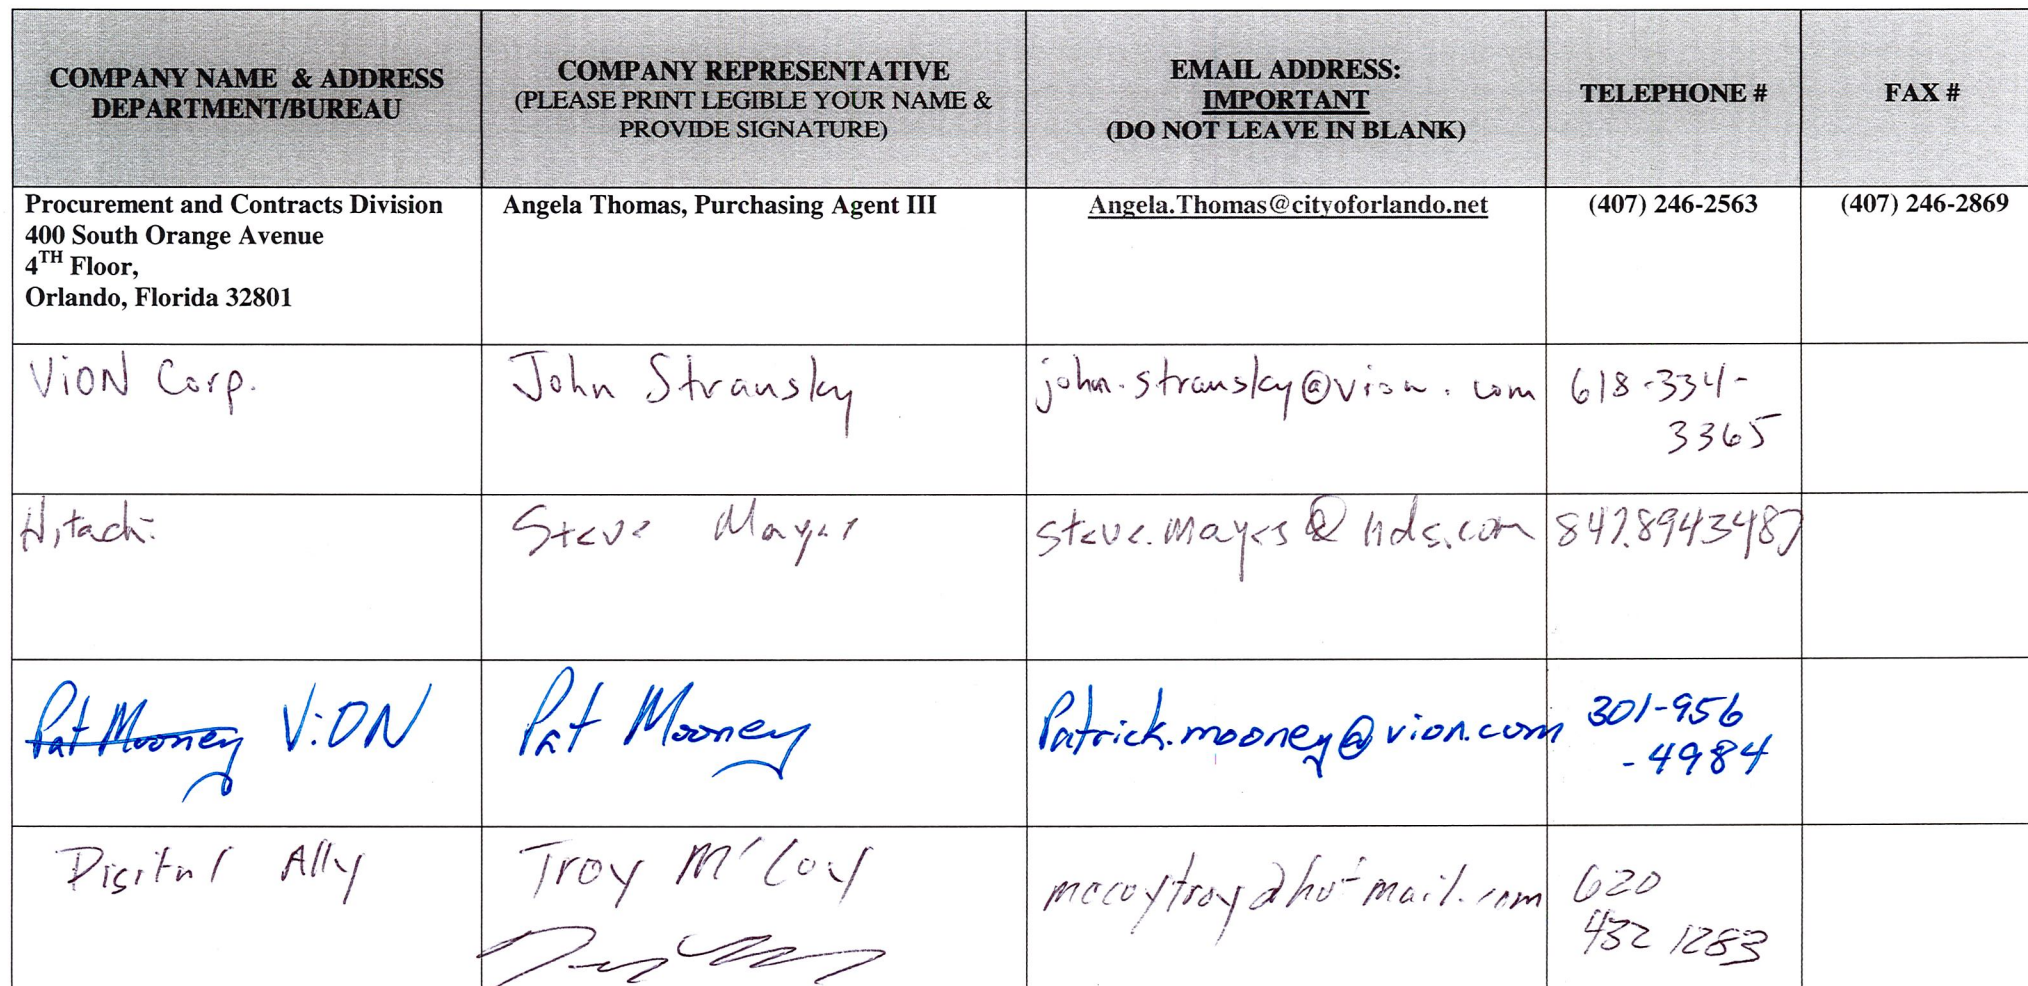 COMPANY NAME & ADDRESS
DEPARTMENT/BUREAU
COMPANY REPRESENTATIVE
(PLEASE PRINT LEGIBLE YOUR NAME &
PROVIDE SIGNATURE)
EMAIL ADDRESS:
IMPORTANT
(DO NOT LEAVE IN BLANK)
TELEPHONE #
FAX #
Procurement and Contracts Division
400 South Orange Avenue
4TH Floor,
Orlando, Florida 32801
Angela Thomas, Purchasing Agent III
Angela.Thomas@cityoforlando.net
(407) 246-2563
(407) 246-2869
ViON Corp.
John Stransky
john.stransky@vion.com
618-334-
3365
Hitachi
Steve Mayes
steve.mayes@hds.com
847.8943487
Pat Mooney ViON
Pat Mooney
Patrick.mooney@vion.com
301-956
-4984
Digital Ally
Troy McCoy
mccoytroy@hotmail.com
620
432 1283